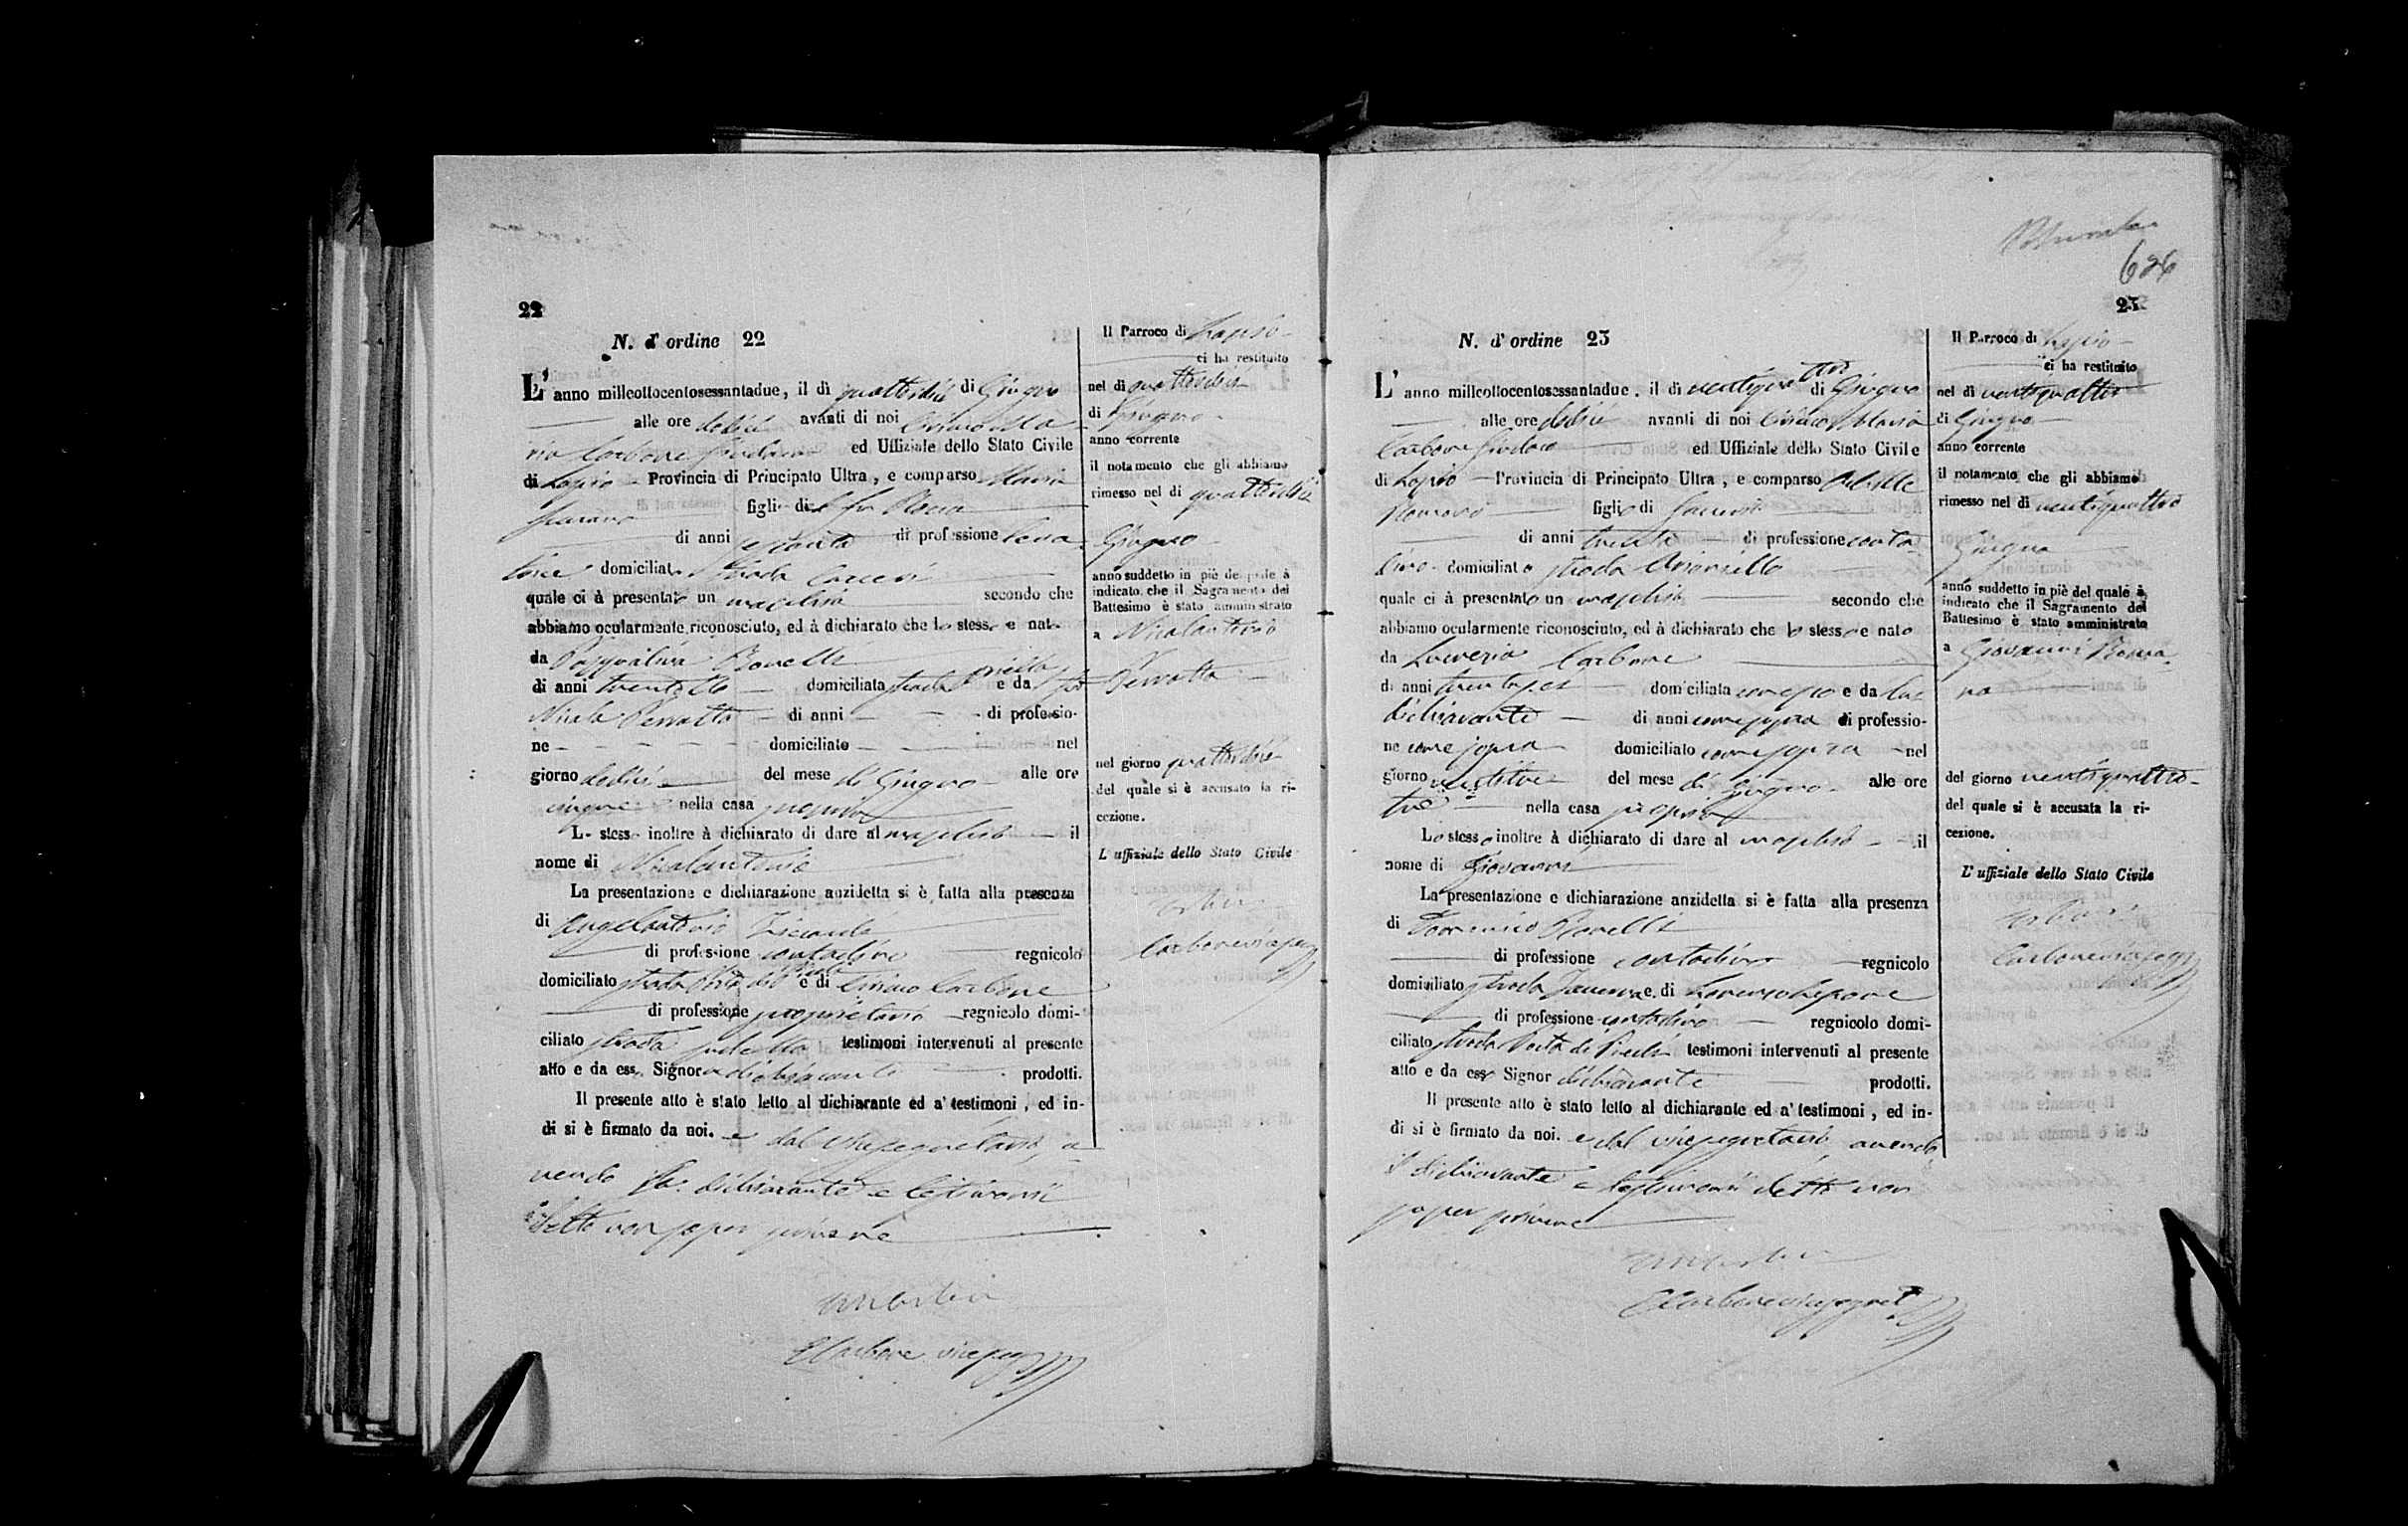 22
N. d'ordine 22
L'anno milleottocentosessantadue, il dì quattordici di Giugno
alle ore dodici avanti di noi Ciriaco Ma
ria Carbone Sindaco ed Uffiziale dello Stato Civile
di Lapio Provincia di Principato Ultra, e comparso Maria
figli di
di anni sessanta di professione leva
trice domiciliata strada Carceri
quale ci à presentato un maschio secondo che
abbiamo ocularmente riconosciuto, ed à dichiarato che lo stesso e nato
da Pasqualina
di anni trentotto domiciliata strada e da fu
Nicola Perrotta di anni di professio-
ne domiciliato nel
giorno dodici del mese di Giugno alle ore
cinque nella casa propria
L stesso inoltre à dichiarato di dare al maschio il
nome di Nicolantonio
La presentazione e dichiarazione anzidetta si è fatta alla presenza
di Angelantonio
di professione contadino regnicolo
domiciliato strada e di Ciriaco Carbone
di professione proprietario regnicolo domi-
ciliato strada testimoni intervenuti al presente
atto e da ess Signora dichiarante prodotti.
Il presente atto è stato letto al dichiarante ed a' testimoni, ed in-
di si è firmato da noi. e dal vicesegretario, a
vendo la dichiarante e testimoni
detto non saper scrivere
Carbone viceseg
Il Parroco di Lapio
ci ha restituito
nel dì quattordici
di Giugno
anno corrente
il notamento che gli abbiamo
rimesso nel dì quattordici
Giugno
anno suddetto in piè del quale à
indicato che il Sagramento del
Battesimo è stato amministrato
a Nicolantonio
Perrotta
nel giorno quattordici
del quale si è accusato la ri-
cezione.
L'uffiziale dello Stato Civile
Carbone viceseg
626
23
N. d'ordine 23
L'anno milleottocentosessantadue, il dì ventiquattro di Giugno
alle ore dodici avanti di noi Ciriaco Maria
Carbone Sindaco ed Uffiziale dello Stato Civile
di Lapio Provincia di Principato Ultra, e comparso Achille
Romano figlio di
di anni trenta di professione conta
dino domiciliato strada
quale ci à presentato un maschio secondo che
abbiamo ocularmente riconosciuto, ed à dichiarato che lo stesso e nato
da Lucrezia Carbone
di anni trentasei domiciliata come sopra e da lui
dichiarante di anni come sopra di professio-
ne come sopra domiciliato come sopra nel
giorno ventitre del mese di Giugno alle ore
tre nella casa propria
Lo stesso inoltre à dichiarato di dare al maschio il
nome di Giovanni
La presentazione e dichiarazione anzidetta si è fatta alla presenza
di Domenico
di professione contadino regnicolo
domiciliato strada e di Lorenzo Lepore
di professione contadino regnicolo domi-
ciliato strada Porta di testimoni intervenuti al presente
atto e da esso Signor dichiarante prodotti.
Il presente atto è stato letto al dichiarante ed a' testimoni, ed in-
di si è firmato da noi. e dal vicesegretario, avendo
il dichiarante e testimoni detto non
saper scrivere
Carbone vicesegret
Il Parroco di Lapio
ci ha restituito
nel dì ventiquattro
di Giugno
anno corrente
il notamento che gli abbiamo
rimesso nel dì ventiquattro
Giugno
anno suddetto in piè del quale à
indicato che il Sagramento del
Battesimo è stato amministrato
a Giovanni Roma
no
del giorno ventiquattro
del quale si è accusata la ri-
cezione.
L'uffiziale dello Stato Civile
Carbone viceseg